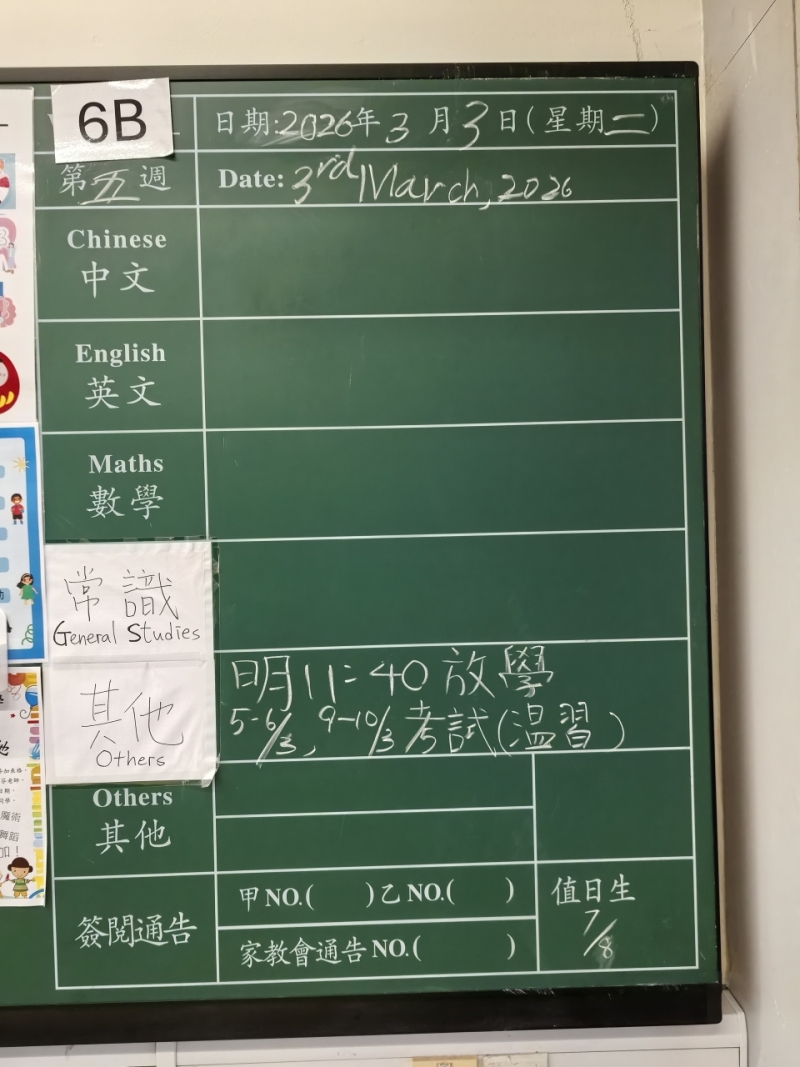 6B
日期:2026年3月3日(星期二)
第五週
Date: 3rd March, 2026
Chinese
中文
English
英文
Maths
數學
常識
General Studies
其他
Others
明11:40放學
5-6/3, 9-10/3考試(溫習)
Others
其他
簽閱通告
甲NO.( )乙NO.( )
家教會通告NO.( )
值日生
7/8
魔術
舞蹈